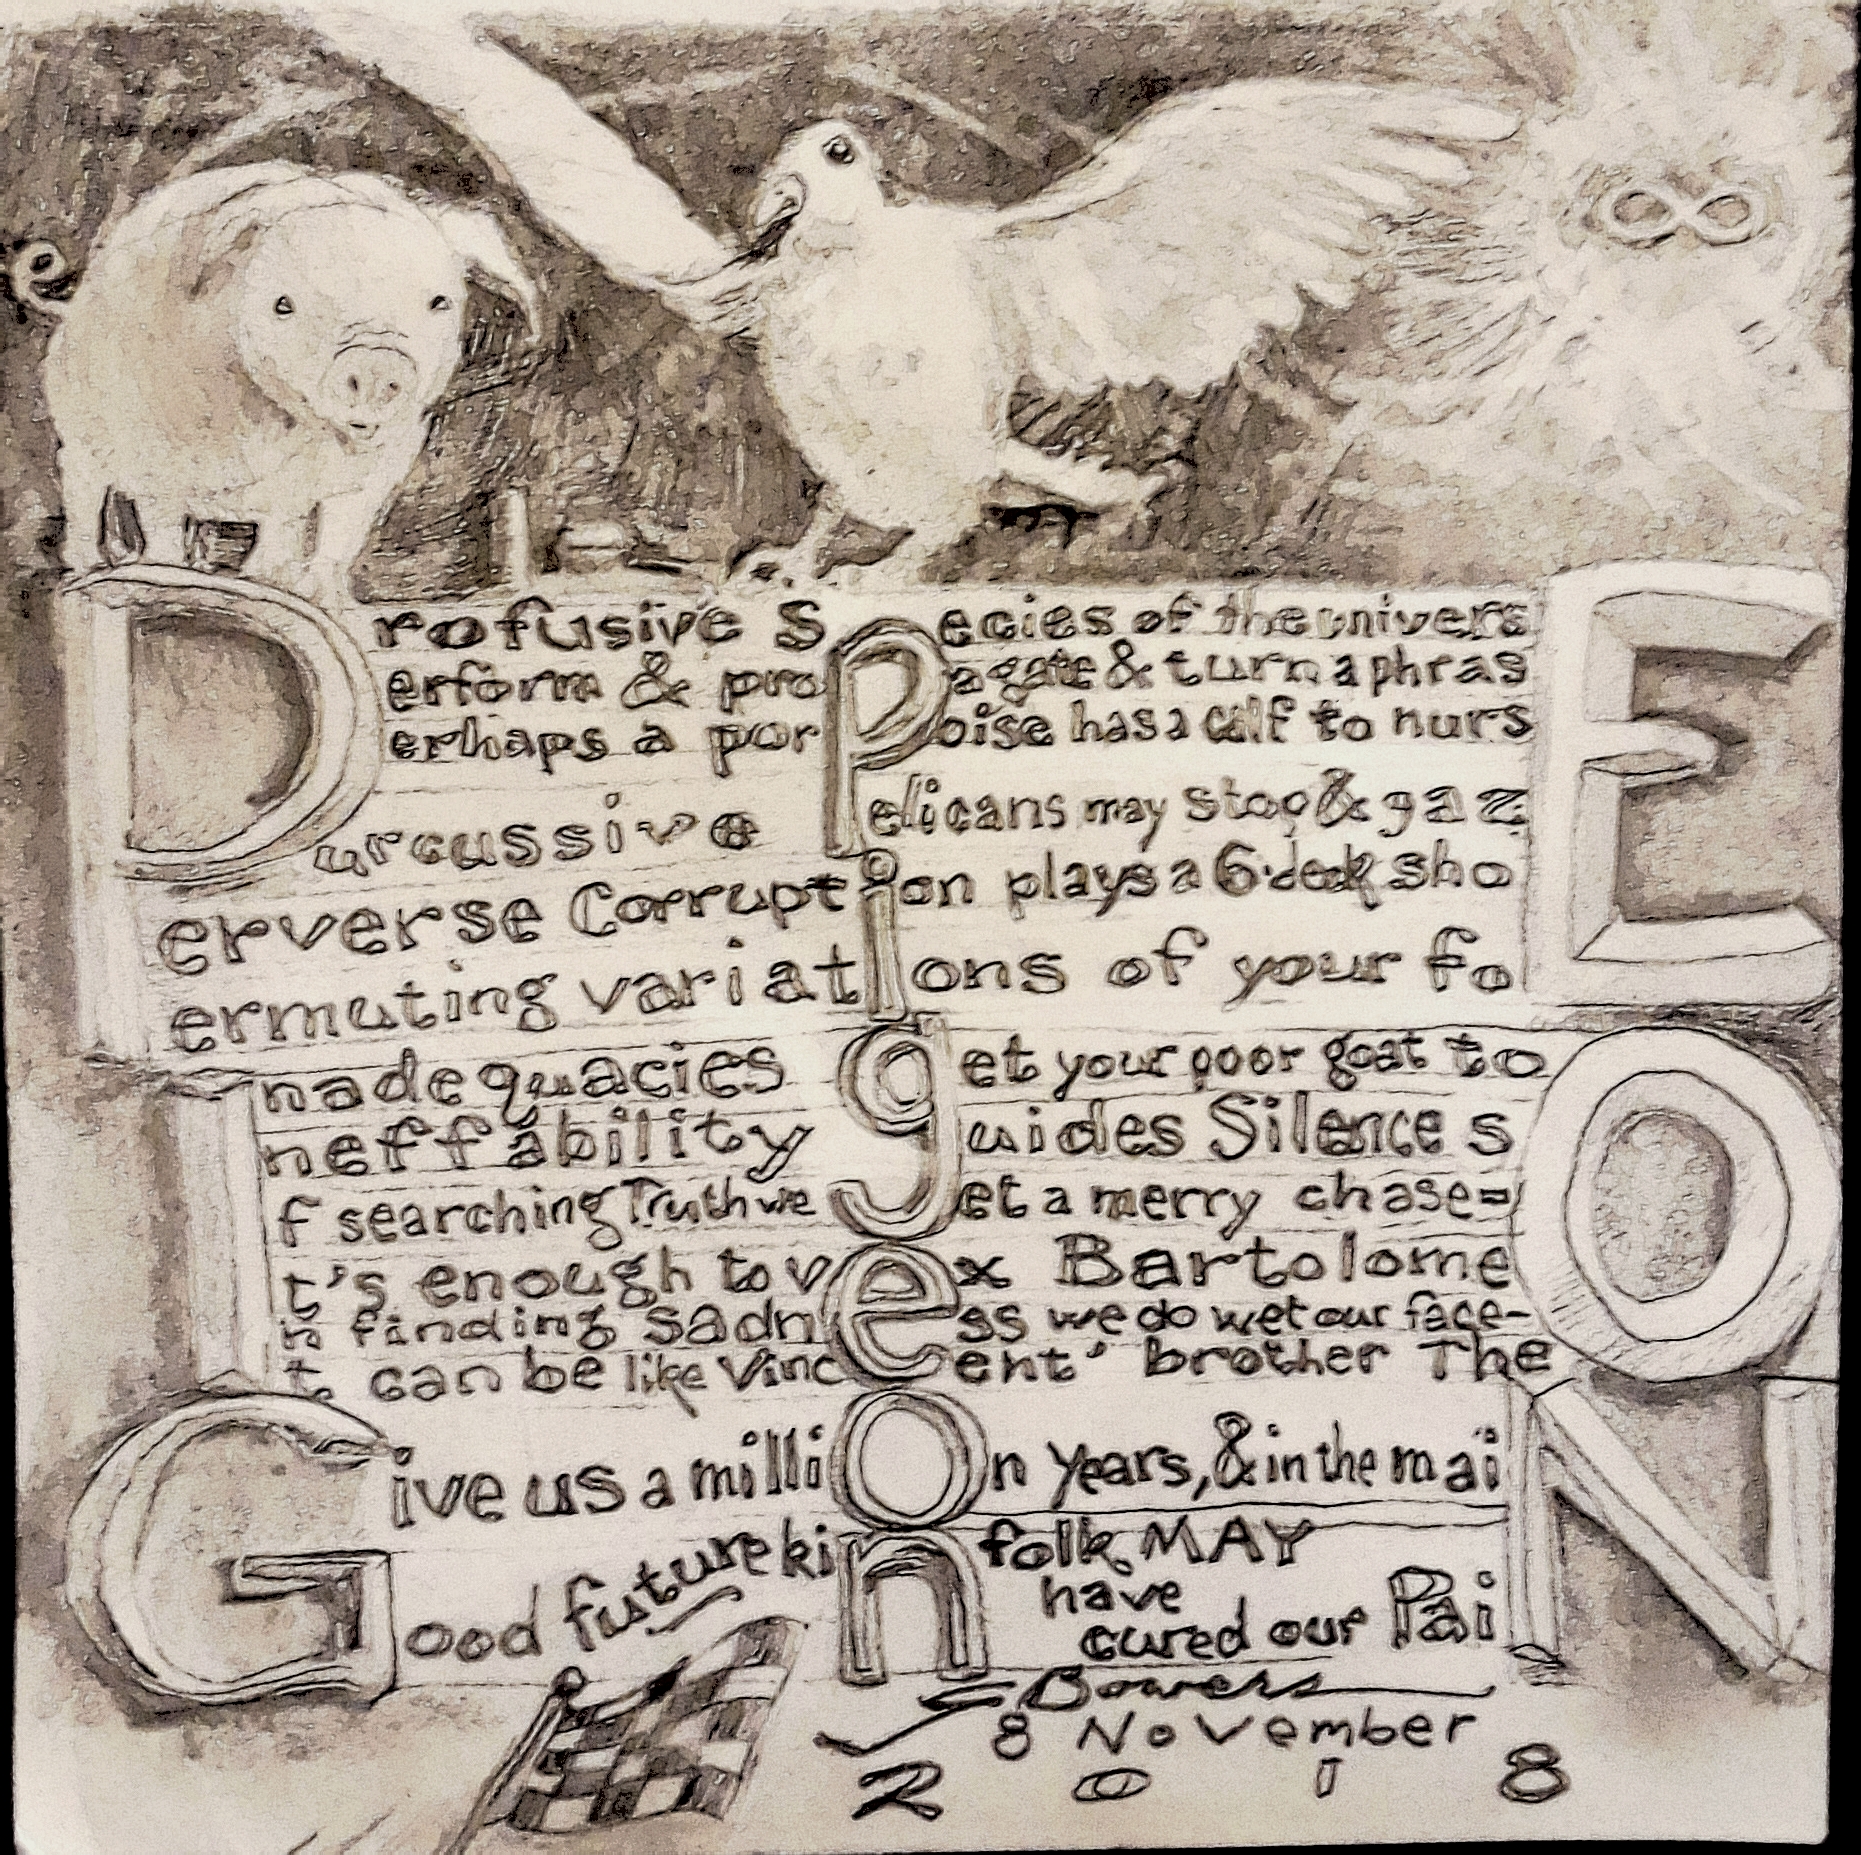 ∞
Profusive Species of the universE
Perform & propagate & turn a phrasE
Perhaps a porpoise has a calf to nursE
Purcussive pelicans may stop & gazE
Perverse Corruption plays a 6·deck shoE
Permuting variations of your foE
Inadequacies get your poor goat toO
Ineffability guides Silence sO
If searching Truth we get a merry chase=
It's enough to vex BartolomeO
in finding sadness we do wet our face-
It can be like Vincent' brother TheO
Give us a million years, & in the maiN
Good future kinfolk MAY
have
cured our PaiN
Bowers
8 November
2018